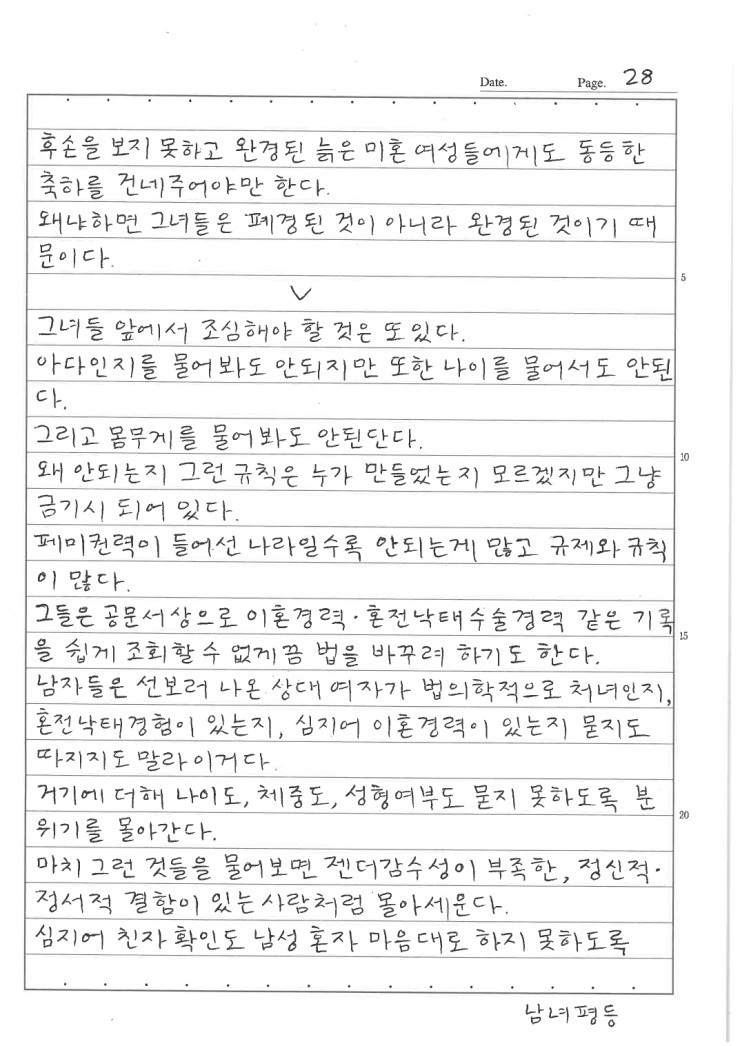 Date. Page. 28
후손을 보지 못하고 완경된 늙은 미혼 여성들에게도 동등한
축하를 건네주어야만 한다.
왜냐하면 그녀들은 폐경된 것이 아니라 완경된 것이기 때
문이다.
5
∨
그녀들 앞에서 조심해야 할 것은 또있다.
아다인지를 물어봐도 안되지만 또한 나이를 물어서도 안된
다.
그리고 몸무게를 물어봐도 안된단다.
10
왜 안되는지 그런 규칙은 누가 만들었는지 모르겠지만 그냥
금기시 되어 있다.
페미권력이 들어선 나라일수록 안되는게 많고 규제와 규칙
이 많다.
그들은 공문서상으로 이혼경력·혼전낙태수술경력 같은 기록
15
을 쉽게 조회할 수 없게끔 법을 바꾸려 하기도 한다.
남자들은 선보러 나온 상대 여자가 법의학적으로 처녀인지,
혼전낙태경험이 있는지, 심지어 이혼경력이 있는지 묻지도
따지지도 말라 이거다.
거기에 더해 나이도, 체중도, 성형여부도 묻지 못하도록 분
20
위기를 몰아간다.
마치 그런 것들을 물어보면 젠더감수성이 부족한, 정신적·
정서적 결함이 있는 사람처럼 몰아세운다.
심지어 친자 확인도 남성 혼자 마음대로 하지 못하도록
남녀평등